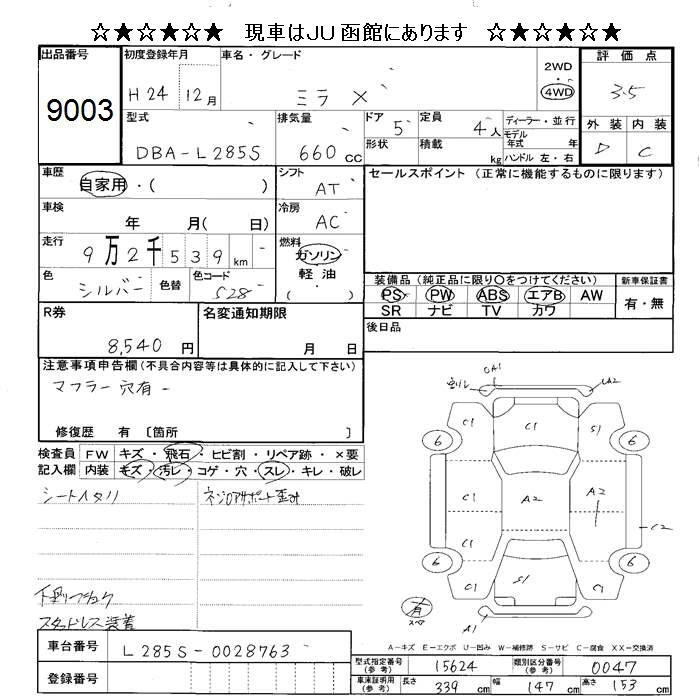 ☆★☆★☆★ 現車はJU函館にあります ☆★☆★☆★
出品番号
9003
初度登録年月
H24 12月
車名・グレード
ミラ
2WD
・
4WD
評価点
3.5
外装 内装
D C
型式
DBA-L285S
排気量
660 cc
ドア
5
形状
定員
4人
積載
kg
ディーラー・並行
モデル
年式 年
ハンドル 左・右
車歴
自家用・( )
シフト
AT
セールスポイント (正常に機能するものに限ります)
車検
年 月( 日)
冷房
AC
走行
9万2千539km
燃料
ガソリン
軽油
( )
色
シルバー
色替
色コード
S28
装備品 (純正品に限り〇をつけてください)
PS PW ABS エアB AW
SR ナビ TV カワ
新車保証書
有・無
R券
8,540 円
名変通知期限
月 日
後日品
注意事項申告欄(不具合内容等は具体的に記入して下さい)
マフラー穴有
修復歴 有 〔箇所 〕
検査員
記入欄
FW キズ・飛石・ヒビ割・リペア跡・×要
内装 キズ・汚レ・コゲ・穴・スレ・キレ・破レ
シートヘタリ
スタッドレス装着
車台番号
L285S-0028763
登録番号
A1
A2
C1
S1
6
6
C1
A2
A2
C2
C1
6
6
C1
S1
C1
A1
有
スペア
A-キズ E-エクボ U-凹み W-補修跡 S-サビ C-腐食 XX-交換済
型式指定番号
(参考)
15624
類別区分番号
(参考)
0047
車庫証明用
(参考)
長さ 339 cm
幅 147 cm
高さ 153 cm